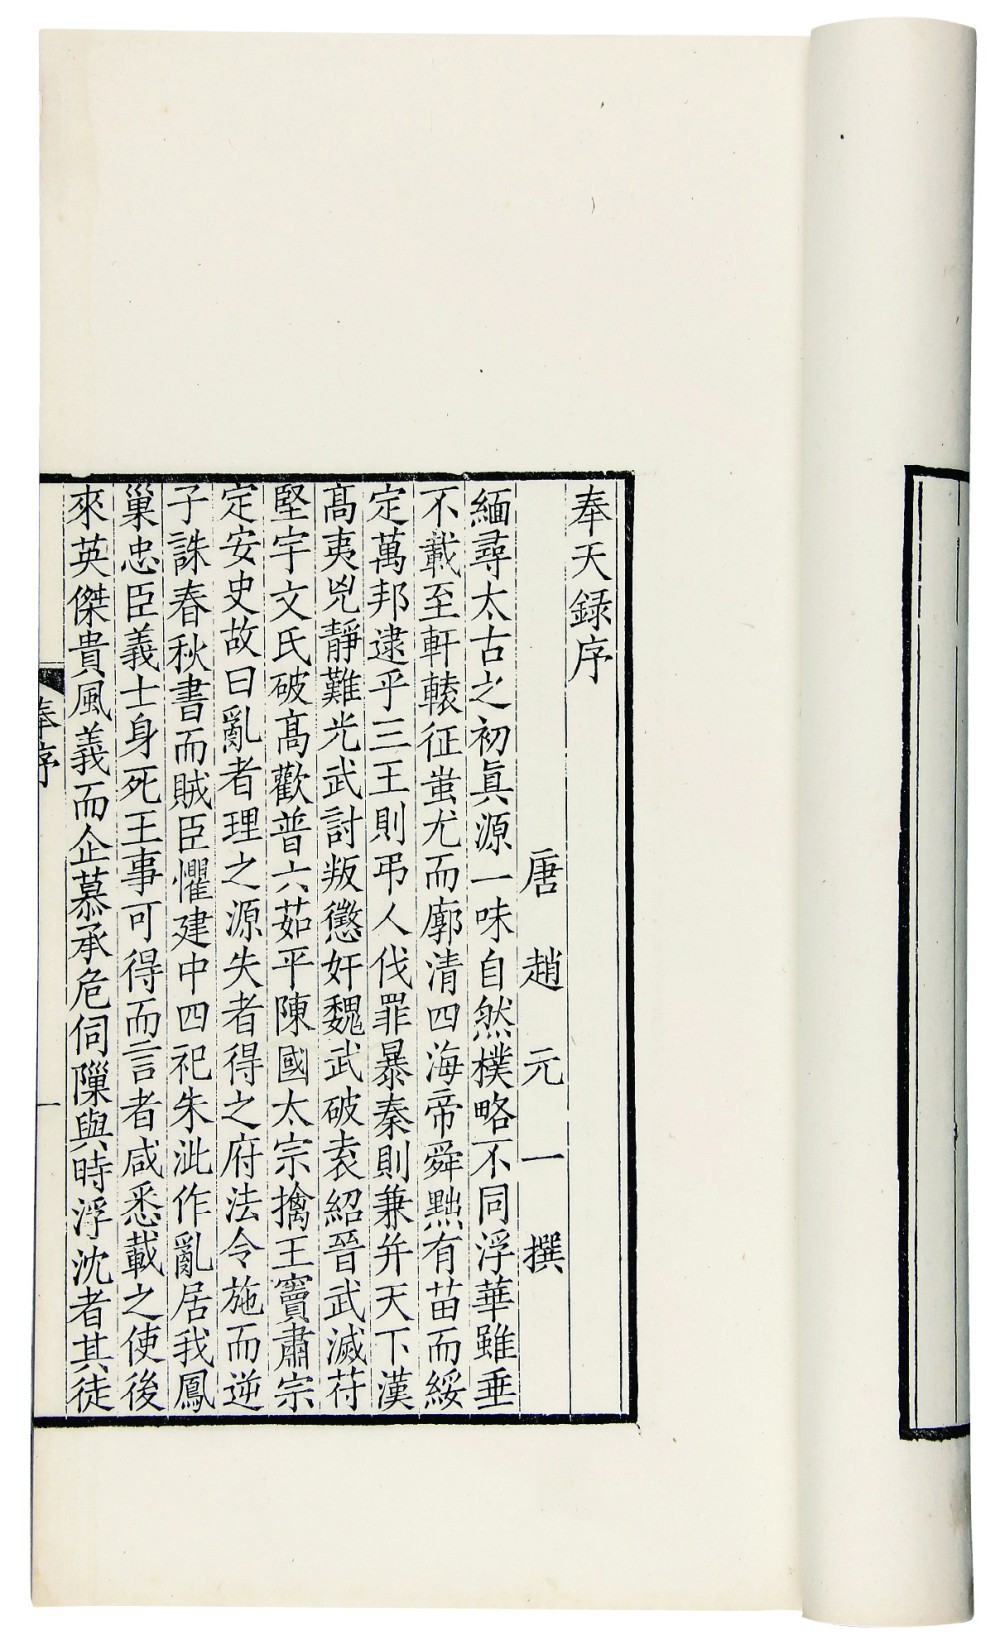 奉天録序
唐趙元一撰
緬尋太古之初眞源一味自然樸略不同浮華雖垂
不載至軒轅征蚩尤而廓清四海帝舜黜有苗而綏
定萬邦逮乎三王則弔人伐罪暴秦則兼并天下漢
高夷兇靜難光武討叛懲奸魏武破袁紹晉武滅苻
堅宇文氏破高歡普六茹平陳國太宗擒王竇肅宗
定安史故曰亂者理之源失者得之府法令施而逆
子誅春秋書而賊臣懼建中四祀朱泚作亂居我鳳
巢忠臣義士身死王事可得而言者咸悉載之使後
來英傑貴風義而企慕承危伺隟與時浮沈者其徒
奉序
一